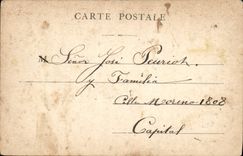 CARTE POSTALE
Señor José Peuriot.
y Familia
Calle Moreno 1808
Capital